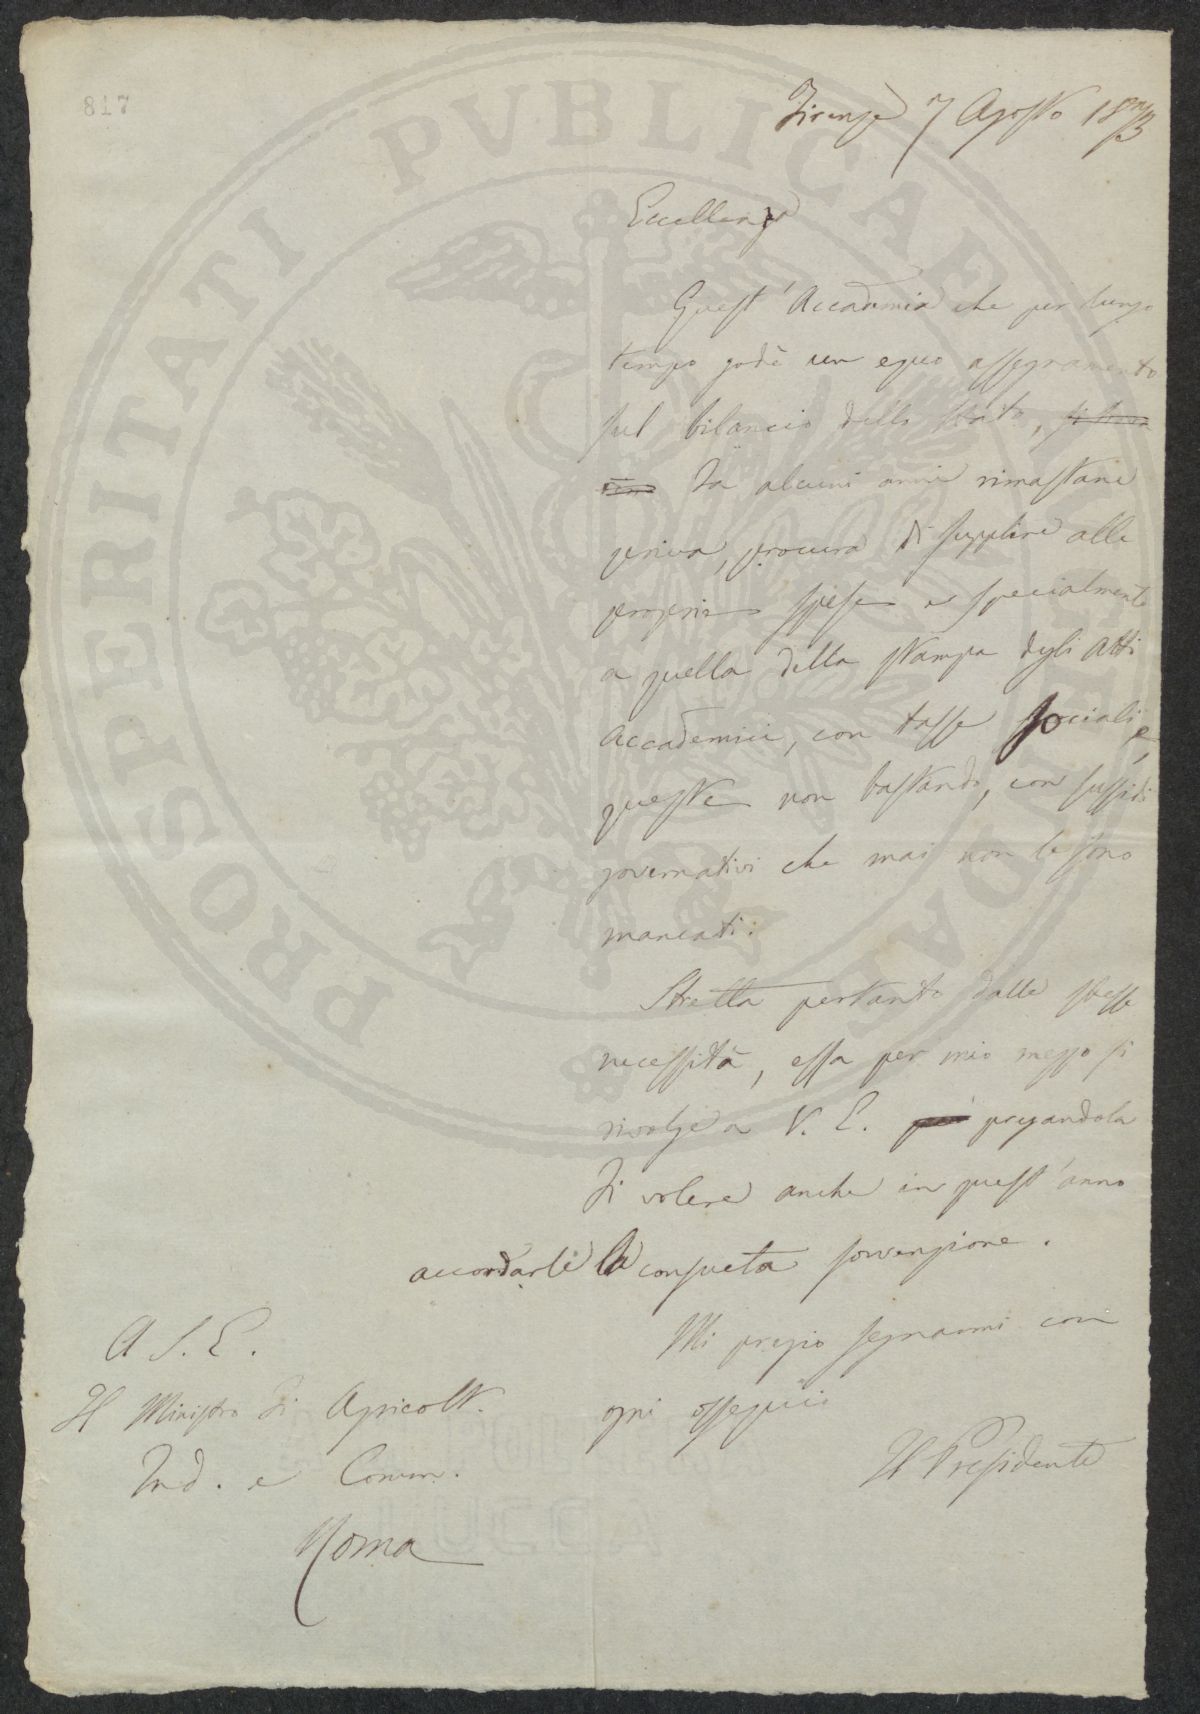 817
Firenze 7 Agosto 1873
Eccellenza
Quest'Accademia che per lungo
tempo godè un equo assegnamento
sul bilancio dello Stato,
da alcuni anni rimastane
priva, procura di supplire alle
proprie spese e specialmente
a quella della stampa degli Atti
Accademici, con tasse sociali, e
queste non bastando, con sussidi
governativi che mai non le sono
mancati.
Stretta pertanto dalle stesse
necessità, essa per mio mezzo si
rivolge a V. E. pregandola
di volere anche in quest'anno
accordarle la consueta sovvenzione.
Mi pregio segnarmi con
ogni ossequio
Il Presidente
A S. E.
Il Ministro di Agricolt.
Ind. e Comm.
Roma
PROSPERITATI PVBLICAE